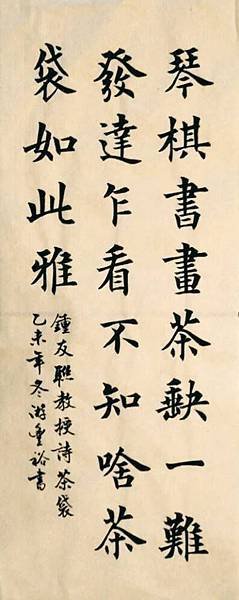 琴棋書畫茶缺一難
發達乍看不知啥茶
袋如此雅
鍾友聯教授詩茶袋
乙未年冬游重裕書